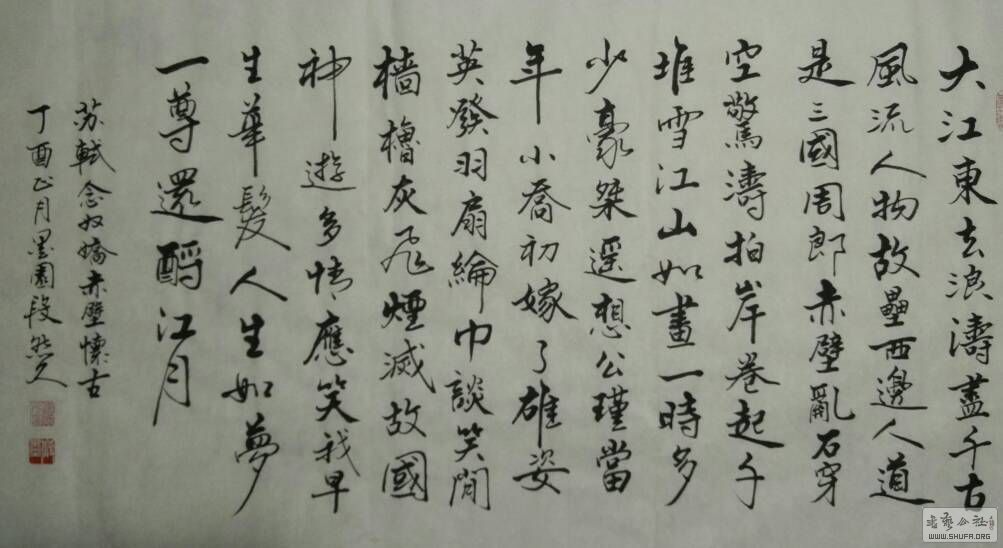 大江東去浪濤盡千古
風流人物故壘西邊人道
是三國周郎赤壁亂石穿
空驚濤拍岸卷起千
堆雪江山如畫一時多
少豪桀遥想公瑾當
年小喬初嫁了雄姿
英發羽扇綸巾談笑間
檣櫓灰飛煙滅故國
神遊多情應笑我早
生華髮人生如夢
一尊還酹江月
苏軾念奴嬌赤壁懷古
丁酉正月墨園段
WWW.SHUFA.ORG